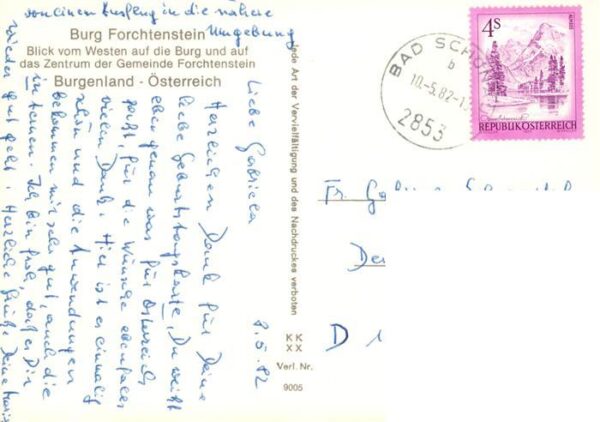 Burg Forchtenstein
Blick vom Westen auf die Burg und auf
das Zentrum der Gemeinde Forchtenstein
Burgenland - Österreich
Liebe Gabriela
8.5.82
Herzlichen Dank für Deine
liebe Geburtstagskarte, Du weißt
eben genau was für Österreich
paßt, für die Wünsche ebenfalls
vielen Dank. Hier ist es einmalig
schön und die Anwendungen
bekommen mir sehr gut, auch die
Ich bin froh, daß es Dir
wieder gut geht. Herzliche Grüße Deine
einen Ausflug in die nähere
Umgebung
Jede Art der Vervielfältigung und des Nachdruckes verboten
KK
XX
Verl. Nr.
9005
BAD SCHÖN
b
10.-5.82-1
2853
4S
REPUBLIK ÖSTERREICH
Fr.
D 1